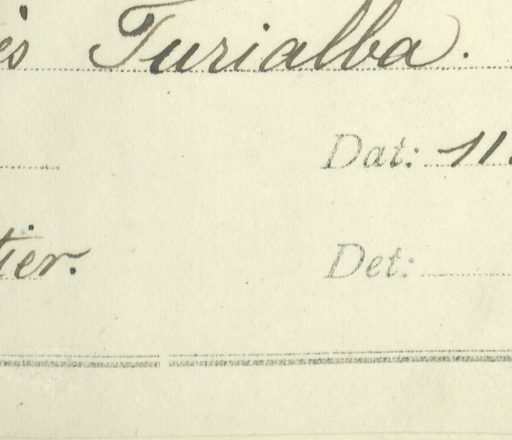 ès Turialba).
Dat: 11.
tier. Det: